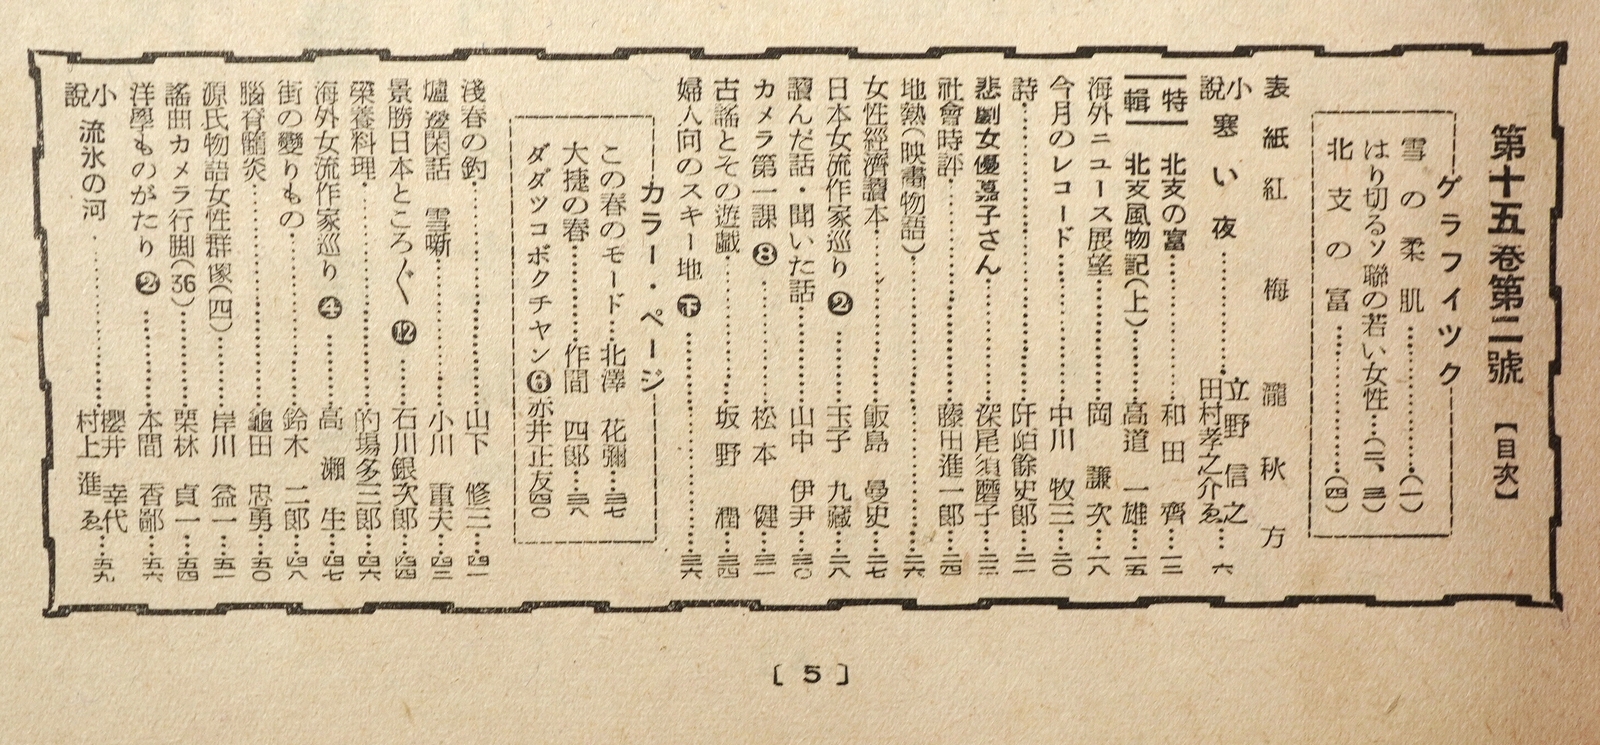 第十五卷第二號【目次】
グラフイツク
雪の柔肌……(一)
はり切るソ聯の若い女性…(二、三)
北支の富……(四)
表紙 紅梅 瀧秋方
小說 寒い夜……立野信之
田村孝之介ゑ…六
特輯 北支の富……和田齊…一二
北支風物記(上)……高道一雄…一五
海外ニュース展望……岡謙次…一八
今月のレコード……中川牧三…二〇
詩……阡陌餘史郎…二一
悲劇女優嘉子さん……深尾須磨子…二二
社會時評……藤田進一郎…二四
地熱(映畫物語)……二六
女性經濟讀本……飯島曼史…二七
日本女流作家巡り❷……玉子九藏…二八
讀んだ話・聞いた話……山中伊尹…三〇
カメラ第一課❽……松本健…三一
古謠とその遊戲……坂野潤…三四
婦人向のスキー地 下……三六
カラー・ページ
この春のモード…北澤花彌…三七
大捷の春……作間四郎…三八
ダダツコボクチヤン❻赤井正友四〇
淺春の釣……山下修三…四一
爐邊閑話 雪噺……小川重夫…四三
景勝日本ところ〴〵⓬……石川銀次郎…四四
榮養料理……的場多三郎…四六
海外女流作家巡り❹……高瀬生…四七
街の變りもの……鈴木二郎…四八
腦脊髓炎……龜田忠勇…五〇
源氏物語女性群像(四)……岸川益一…五一
謠曲カメラ行脚(36)……栗林貞一…五四
洋學ものがたり❷……本間香鄙…五六
小說 流氷の河……櫻井幸代…五九
村上進ゑ
〔5〕